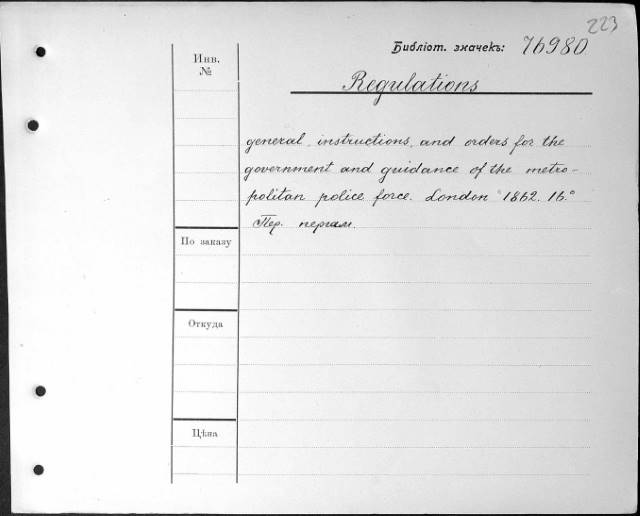 223
Библіот. значекъ: 76980
Инв.
№
Regulations
general instructions and orders for the
government and guidance of the metro-
politan police force. London 1862. 16.°
Пер. пергам.
По заказу
Откуда
Цѣна